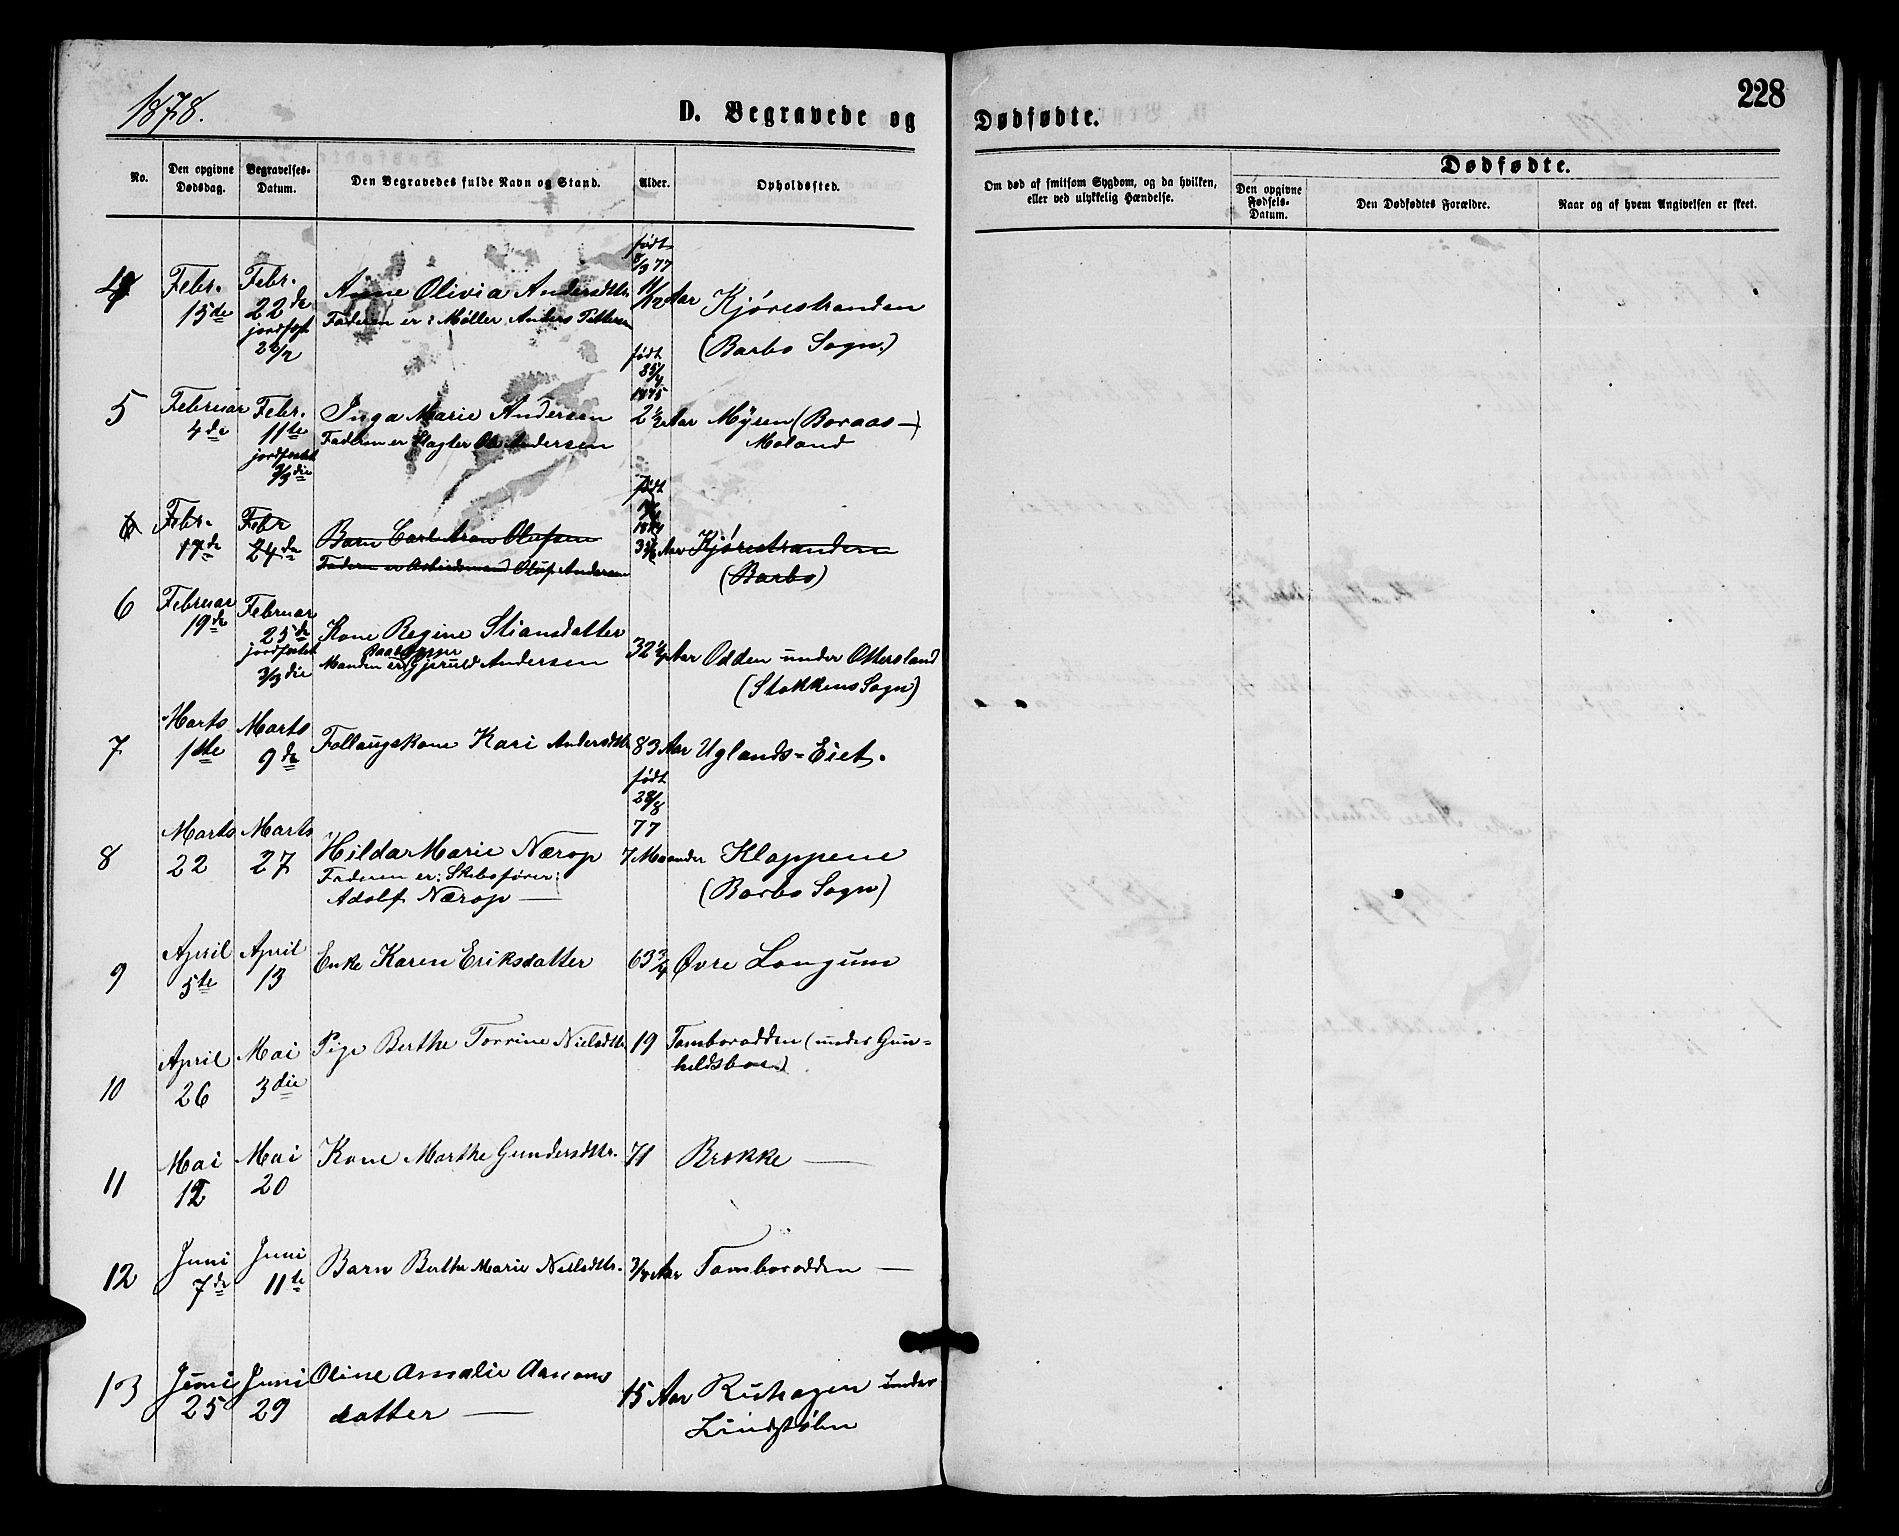 1878.
D. Begravede og
Dødfødte.
228
No.
Den opgivne Dødsdag.
Begravelses-Datum.
Den Begravedes fulde Navn og Stand.
Alder.
Opholdssted.
Om død af smitsom Sygdom, og da hvilken, eller ved ulykkelig Hændelse.
Dødfødte.
Den opgivne Fødsels-Datum.
Den Dødfødtes Forældre.
Naar og af hvem Angivelsen er skeet.
4
Febr. 15de
Febr. 22de jordfæst
Anne Olivia Andersdtr.
Faderen er: Møller Anders Pettersen
født 8/3 77
11/12 Aar
Kjørestranden
(Barbo Sogn.)
5
Februar 4de
Febr. 11te jordfæstet 3/3die
Inga Marie Andersen
Faderen er Slagter Ole Andersen
født
1875
2 1/2 Aar
Mysen (Boraas-)
Moland
6
Febr. 17de
Febr 24de
Barn Carl Aron Olufsen
Faderen er Arbeidsmand Oluf Andersen
født
Kjørestranden
(Barbo)
6
Februar 19de
Februar 25de jordfæstet 3/3die
Kone Regine Stiansdatter
Manden er Gjeruld Andersen
32 1/4 Aar
Odden under Ottersland
(Stokkens Sogn)
7
Marts 1ste
Marts 9de
Follaugskone Kari Andersdtr.
83 Aar
Uglands=Eiet.
8
Marts 22
Marts 27
Hilda Marie Nærop
Faderen er: Skibsfører:
Adolf Nærop
født 28/8 77
7 Maaneder
Klappene
(Barbo Sogn)
9
April 5te
April 13
Enke Karen Eriksdatter
63 3/4
Øvre Longum
10
April 26
Mai 3die
Pige Berthe Torrine Nielsdtr.
19
Tomborodden (under Gun=
heldsboe.)
11
Mai 12
Mai 20
Kone Marthe Gundersdtr.
71
Brekke
12
Juni 7de
Juni 11te
Barn Berthe Marie Nielsdtr.
3/4 Aar
Tomborodden
13
Juni 25
Juni 29
Oline Amalie Aanons
datter
15 Aar
Ruhagen under
Lindstølen